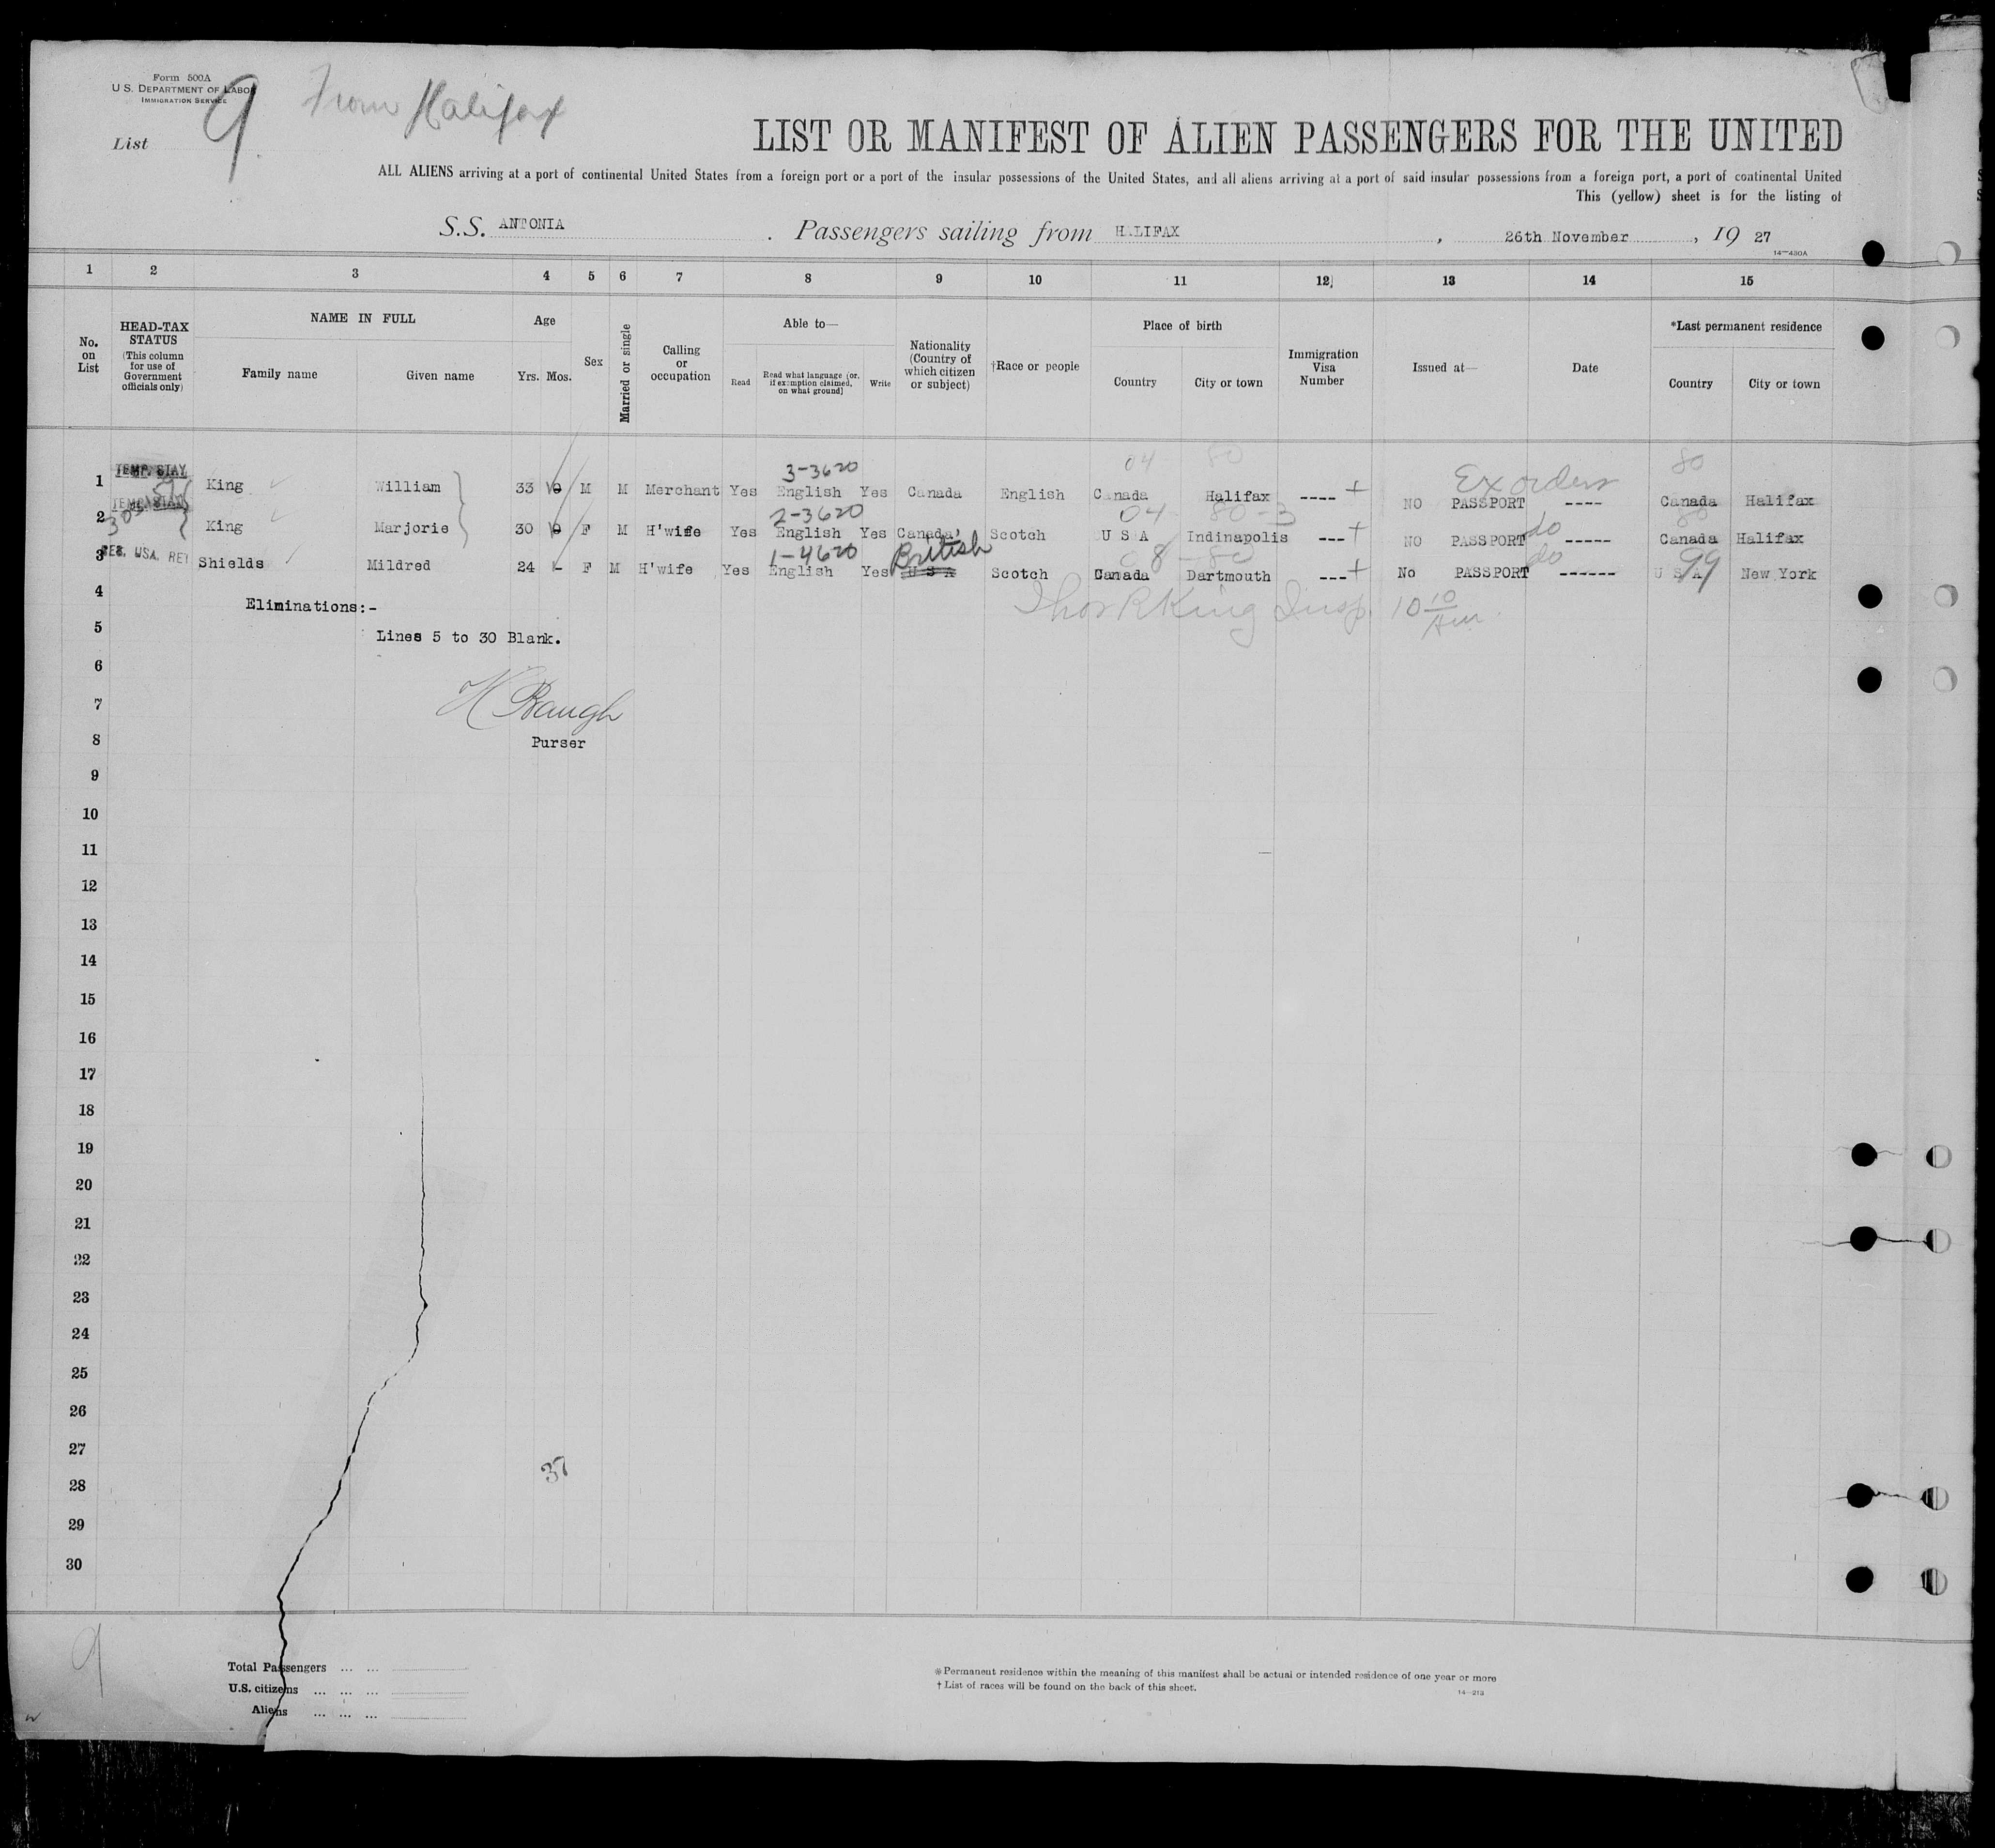 Form 500A
U.S. DEPARTMENT OF LABOR
IMMIGRATION SERVICE
List 9 From Halifax
LIST OR MANIFEST OF ALIEN PASSENGERS FOR THE UNITED
ALL ALIENS arriving at a port of continental United States from a foreign port or a port of the insular possessions of the United States, and all aliens arriving at a port of said insular possessions from a foreign port, a port of continental United
This (yellow) sheet is for the listing of
S.S. ANTONIA . Passengers sailing from HALIFAX , 26th November , 19 27
14—430A
1 2 3 4 5 6 7 8 9 10 11 12 13 14 15
No. on List
HEAD-TAX STATUS (This column for use of Government officials only)
NAME IN FULL
Family name Given name
Age
Yrs. Mos.
Sex
Married or single
Calling or occupation
Able to—
Read Read what language (or, if exemption claimed, on what ground) Write
Nationality (Country of which citizen or subject)
†Race or people
Place of birth
Country City or town
Immigration Visa Number
Issued at—
Date
*Last permanent residence
Country City or town
3-3620 04 80 Ex orders 80
1 TEMP. STAY King William 33 0 M M Merchant Yes English Yes Canada English Canada Halifax ---- + NO PASSPORT ---- Canada Halifax
2-3620 04 80-3 do 80
2 TEMP. STAY King Marjorie 30 0 F M H'wife Yes English Yes Canada Scotch U S A Indinapolis --- + NO PASSPORT ----- Canada Halifax
1-4620 British 08-80 do 99
3 RES. USA. RET Shields Mildred 24 - F M H'wife Yes English Yes U S A Scotch Canada Dartmouth --- + No PASSPORT ------ U S A New York
4 Eliminations:- Thos R King Insp. 10 10/Am
5 Lines 5 to 30 Blank.
6
7 H Baugh
8 Purser
9
10
11
12
13
14
15
16
17
18
19
20
21
22
23
24
25
26
27
37
28
29
30
9
Total Passengers ... ...
U.S. citizens ... ... ...
Aliens ... ... ...
*Permanent residence within the meaning of this manifest shall be actual or intended residence of one year or more
† List of races will be found on the back of this sheet.
14—213